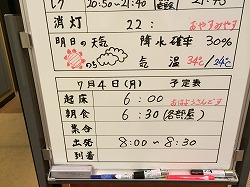 20:50~21:40
消灯 22: おやすみやす
明日の天気 降水確率 30%
のち 気温 34℃/24℃
7月4日(月) 予定表
起床 6:00 おはようさんどす
朝食 6:30(各部屋)
集合
出発 8:00~8:30
到着